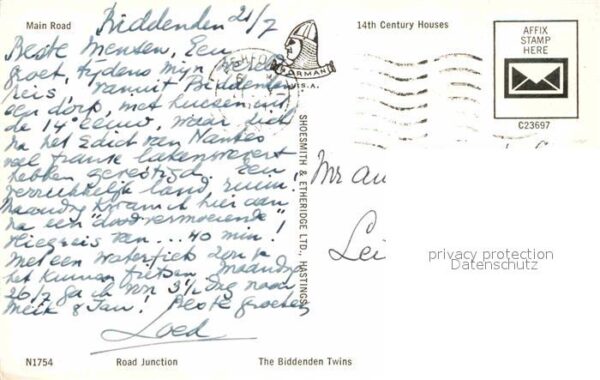 Main Road
14th Century Houses
AFFIX
STAMP
HERE
C23697
NORMAN
U.S.A.
SHOESMITH & ETHERIDGE LTD., HASTINGS
Biddenden 21/7
Beste Mensen, Een
groet, tijdens mijn
reis, vanuit Biddenden
een dorp, met huizen uit
de 14e eeuw, waar zich
na het Edict van Nantes
veel franse lakenwevers
hebben gevestigd. Een
verrukkelijk land, ruim.
Maandag kwam ik hier aan
na een "doodvermoeiende"
vliegreis van ... 40 min!
Met een waterfiets zou je
het kunnen fietsen. Maandag
26/7 ga ik voor 3 1/2 naar
8 Jan! Beste groeten
Loed
Mr au
Lei
privacy protection
Datenschutz
N1754
Road Junction
The Biddenden Twins